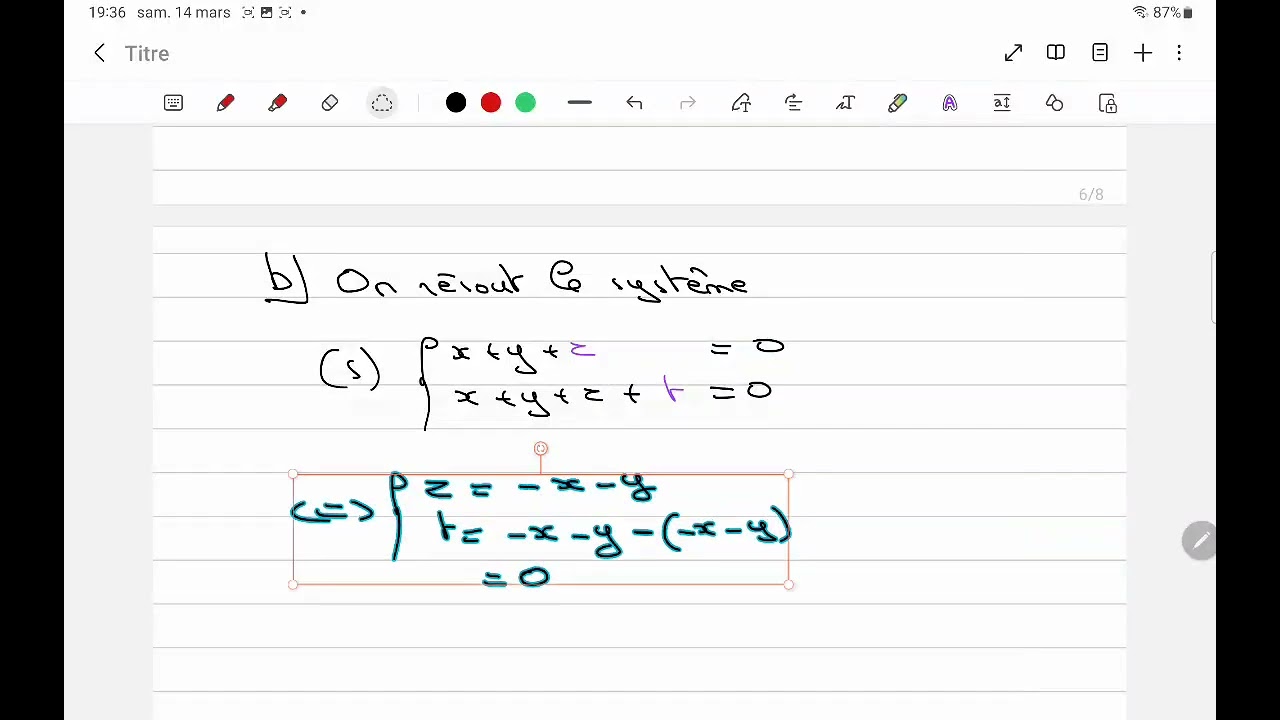 19:36 sam. 14 mars 87%
Titre
6/8
b) On résout le système
(S) { x + y + z = 0
x + y + z + t = 0
(=) { z = -x - y
t = -x - y - (-x - y)
= 0